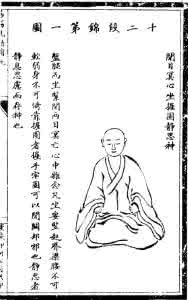 十二段錦第一圖
閉目冥心坐握固靜思神
盤腿而坐緊閉兩目冥亡心中雜念凡坐要豎起脊梁腰不可
軟弱身不可倚靠握固者握手牢固可以閉關却邪也靜思者
靜息思慮而存神也